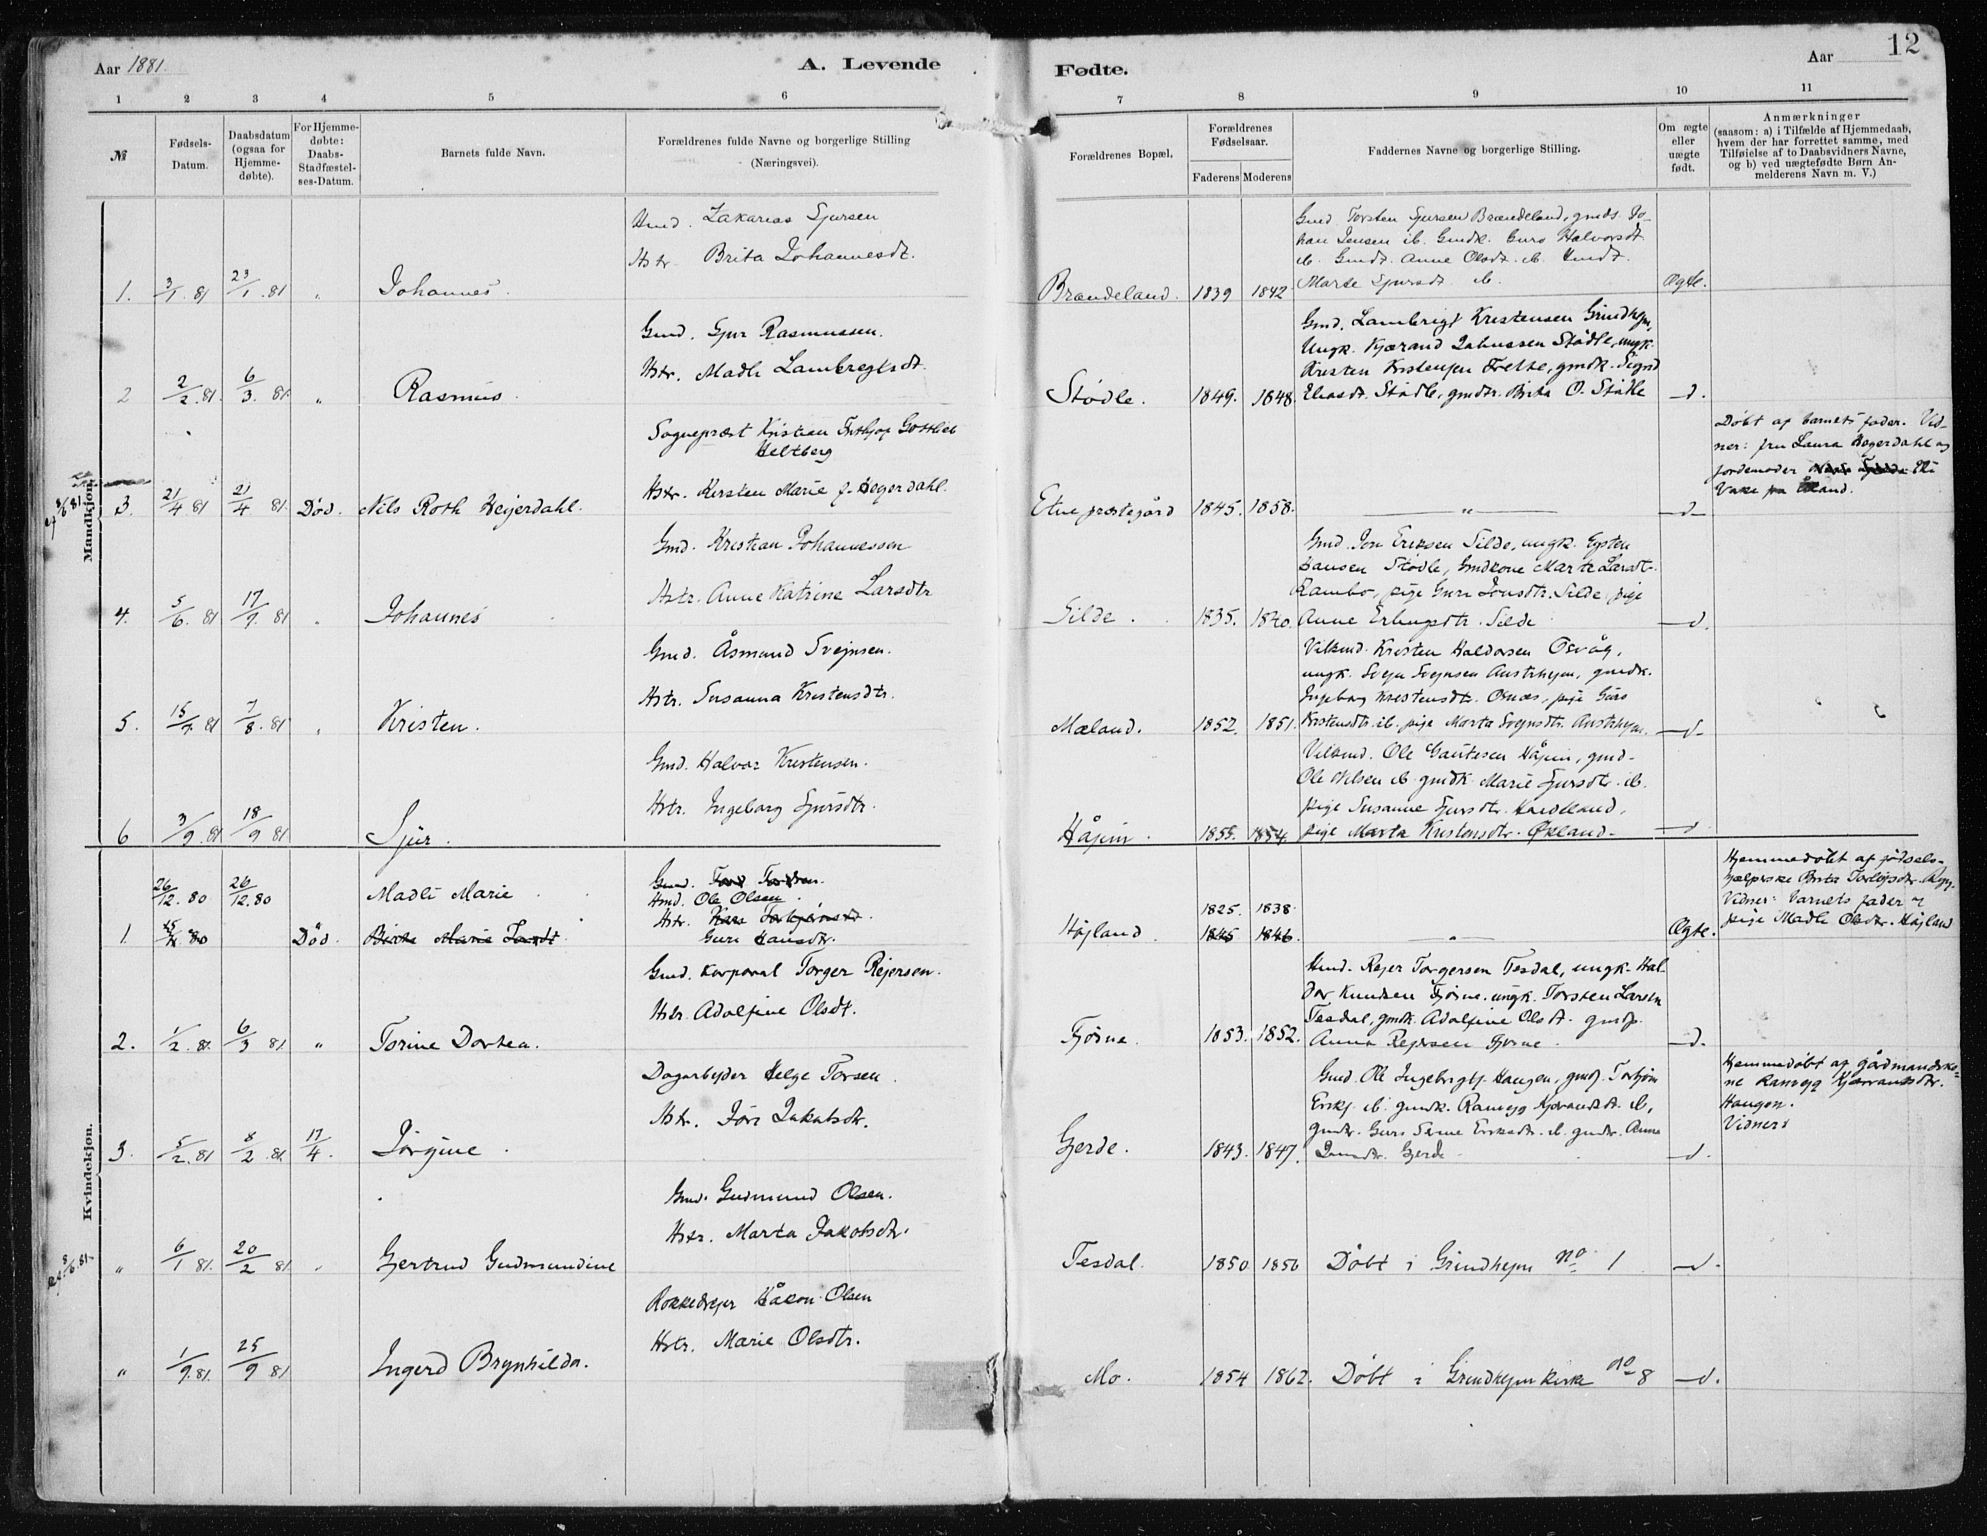 Aar 1881.
A. Levende
Fødte.
Aar
12
1 2 3 4 5 6 7 8 9 10 11
№
Fødsels-
Datum.
Daabsdatum
(ogsaa for
Hjemme-
døbte).
For Hjemme-
døbte:
Daabs-
Stadfæstel-
ses-Datum.
Barnets fulde Navn.
Forældrenes fulde Navne og borgerlige Stilling
(Næringsvei).
Forældrenes Bopæl.
Forældrenes
Fødselsaar.
Faderens Moderens
Faddernes Navne og borgerlige Stilling.
Om ægte
eller
uægte
født.
Anmærkninger
(saasom: a) i Tilfælde af Hjemmedaab,
hvem der har forrettet samme, med
Tilføielse af to Daabsvidners Navne,
og b) ved uægtefødte Børn An-
melderens Navn m. V.)
Mandkjøn.
1. 3/1 81 23/1 81 " Johannes.
Hmd. Zakarias Sjursen
Hstr. Brita Johannesdt.
Brændeland. 1839 1842
Gmd Torsten Sjursen Brændeland, gmds. Jo-
han Jensen ib. Gmdk. Guro Halvorsdt.
ib. Gmdt. Anne Olsdt. ib. Hmdt.
Marte Sjursdt ib.
Ægte.
2 2/2 81 6/3 81 " Rasmus
Gmd. Sjur Rasmussen.
Hstr. Madli Lambregtsdt.
Stødle. 1849. 1848.
Gmd. Lambrigt Kristensen Grindhejm,
Ungk. Kjærand Stødle, ungk.
Kristen Kristensen Frette, gmdk. Signd
Eliasdt. Stødle, gmdtr. Brita O. Stødle
—d.
3. 21/4 81 21/4 81 Død. Nils Roth Heijerdahl.
Sognepræst Kristian Frithjof Gottlieb
Heltberg
Hstr. Kirsten Marie f. Hegerdahl.
Etne præstegård 1845. 1858.
"
—d—
Døbt af barnets fader. Vid-
ner: fru Laura Hegerdahl og
jordemoder
4. 5/6 81 17/9 81 " Johannes
Gmd. Kristian Johannessen
Hstr. Anne Katrine Larsdtr
Silde. 1835. 1840.
Gmd. Jon Eriksen Silde, ungk. Eysten
Hansen Stødle, Gmdkone Marta Larsdt.
Rambo, pige Guri Jonsdtr. Silde, pige
Anne Erlingsdtr. Silde
—d.
5. 15/7 81 7/8 81 " Kristen.
Gmd. Åsmund Svejnsen.
Hstr. Susanna Kristensdtr.
Mæland. 1852. 1851.
Vilkmd. Kristen Haldorsen Osvåg,
ungk. Svejn Svejnsen Austrhejm, gmdk.
Ingeborg Kristensdt. Osnæs, pige Guro
Kristensdtr. ib. pige Marta Svejnsdtr. Austrhejm.
—d—
6 3/9 81 18/9 81 Sjur.
Gmd. Halvor Kristensen.
Hstr. Ingeborg Sjursdtr.
Håjem. 1855. 1854.
Vilkmd. Ole Gautesen Håjem, gmd.
Ole Nilsen ib. gmdk. Marie Sjursdtr. ib.
pige Susanne Sjursdtr. Hardeland,
pige Marta Kristensdtr. Økland.
—d
Kvindekjøn.
1. 26/12 80 26/12 80 Død. Madli Marie
Hmd. Ole Olsen
Guri Hansdtr.
Højland. 1825. 1838
1845 1846
"
Ægte.
Hjemmedøbt af fødsels-
hjælperske Brita
Vidner: Barnets fader &
pige Madli Olsdtr. Højland
2. 1/2 81 6/3 81 " Torine Dortea.
Gmd. korporal Torger Rejersen.
Hstr. Adolfine Olsdt.
Fjøsne. 1853. 1852.
Hmd. Rejer Torgersen Tesdal, ungk. Hal-
dor Knudsen Fjøsne, ungk. Torsten Larsen
Tesdal, gmdk. Adolfine Olsdt. gmdp.
Anna Rejersen Fjøsne.
—d.
3. 5/2 81 8/2 81 17/4. Jørgine.
Dagarbejder Helge Torsen.
Hstr. Jakobsdtr.
Gjerde. 1843. 1847.
Gmd. Ole Ingebrigts. Haugen, gmds. Torbjørn
Eriks. ib. gmdk. Ranveig Kjerandsdt. ib,
gmdtr. Guri Serine Eriksdtr. ib. gmdtr. Anna
Jensdtr. Gjerde
—d.
Hjemmedøbt af gårdmandsko-
ne Ranveig Kjerandsdtr.
Haugen.
Vidner:
" 6/1 81. 20/2 81 " Gjertrud Gudmundine
Gmd. Gudmund Olsen.
Hstr. Marta Jakobsdtr.
Tesdal. 1850 1856 Døbt i Grindhejm No 1 —d.
" 1/9 81. 25/9 81 Ingerd Brynhilda.
Rokkedrejer Håkon Olsen
Hstr. Marie Olsdtr.
Mo. 1854 1862. Døbt i Grindhejm kirke No 8 —d.